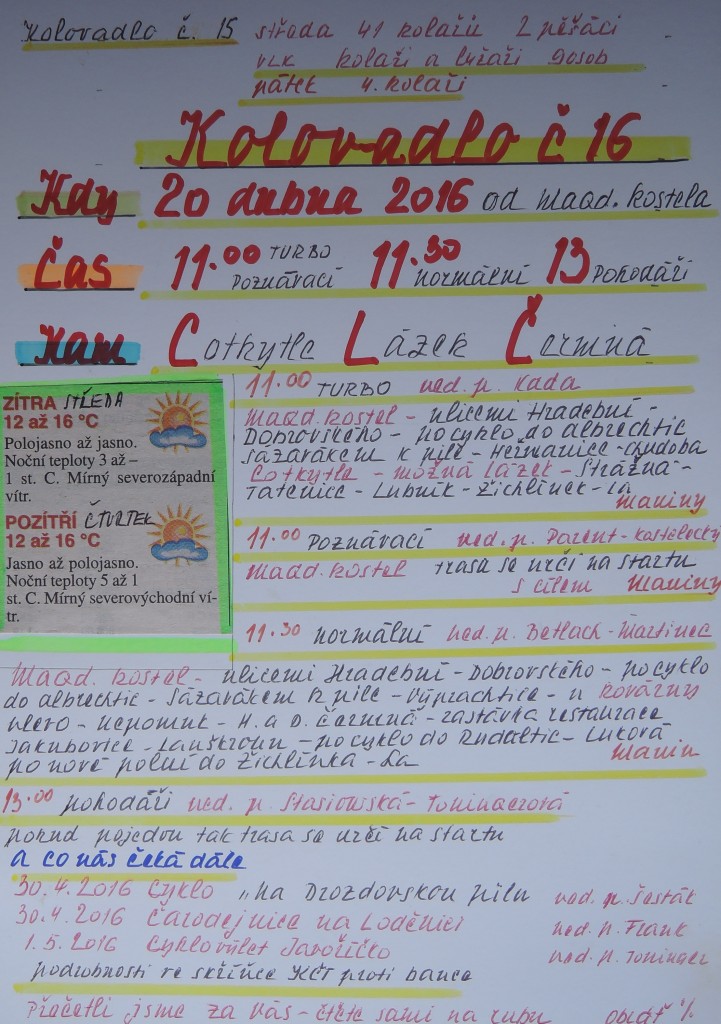 Kolovadlo č. 15 středa 41 kolařů 2 pěšáci
VLK kolaři a lyžaři 9osob
pátek 4. kolaři
Kolovadlo č 16
Kdy 20 dubna 2016 od Magd. kostela
Čas 11.00 TURBO POZNÁVACÍ 11.30 normální 13 Pohodáři
Kam Cotkytle Lázek Čermná
ZÍTRA STŘEDA
12 až 16 °C
Polojasno až jasno.
Noční teploty 3 až –
1 st. C. Mírný severozápadní
vítr.
POZÍTŘÍ ČTVRTEK
12 až 16 °C
Jasno až polojasno.
Noční teploty 5 až 1
st. C. Mírný severovýchodní ví-
tr.
11.00 TURBO ved. p. Kada
Magd. kostel - ulicemi Hradební -
Dobrovského - po cyklo do Albrechtic
Sázavákem k pile - Heřmanice - Chudoba
Cotkytle - možná Lázek - Strážná -
Tatenice - Lubník - Žichlínek - La
Maniny
11.00 Poznávací ved. p. Parent - Kostelecký
Magd. kostel trasa se určí na startu
s cílem Maniny
11.30 normální ved. p. Betlach - Martinec
Magd. kostel - ulicemi Hradební - Dobrovského - po cyklo
do Albrechtic - Sázavákem k pile - Výprachtice - u kovárny
vlevo - Nepomuk - H. a D. Čermná - zastávka restaurace
Jakubovice - Lanškroun - po cyklo do Rudoltic - Luková
po nové polní do Žichlínka - La Manin
13.00 pohodáři ved. p. Stasiowská -
pokud pojedou tak trasa se určí na startu
a co nás čeká dále
30.4.2016 Cyklo „Na Drozdovskou pilu ved. p. Šesták
30.4.2016 Čarodejnice na Loděnici ved. p. Frank
1.5.2016 Cyklovýlet Javoříčko ved. p. Toninger
podrobnosti ve skříňce KČT proti bance
Přečetli jsme za vás - čtěte sami na rubu obrať %